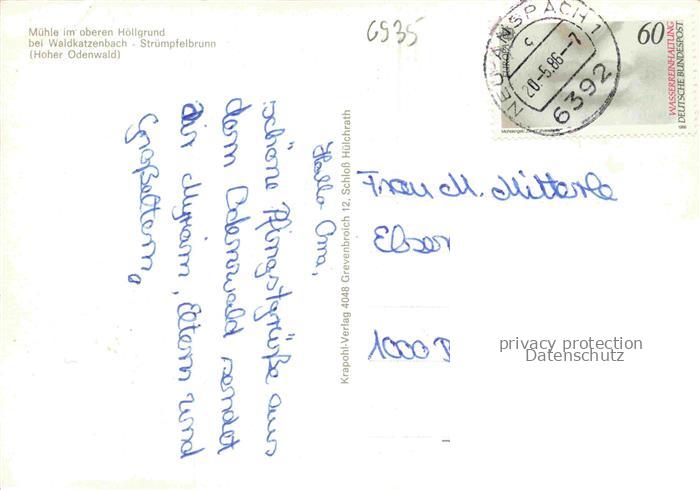 Mühle im oberen Höllgrund
bei Waldkatzenbach - Strümpfelbrunn
(Hoher Odenwald)
6935
NEU-ANSPACH 1
c
20.-5.86--7
6392
60
WASSERREINHALTUNG
DEUTSCHE BUNDESPOST
EUROPA
1986
Hallo Oma,
schöne Pfingstgrüße aus
dem Odenwald sendet
dir Myriam, Eltern und
Großeltern.
Krapohl-Verlag 4048 Grevenbroich 12, Schloß Hülchrath
Frau M. Mitterle
Elser
1000
privacy protection
Datenschutz